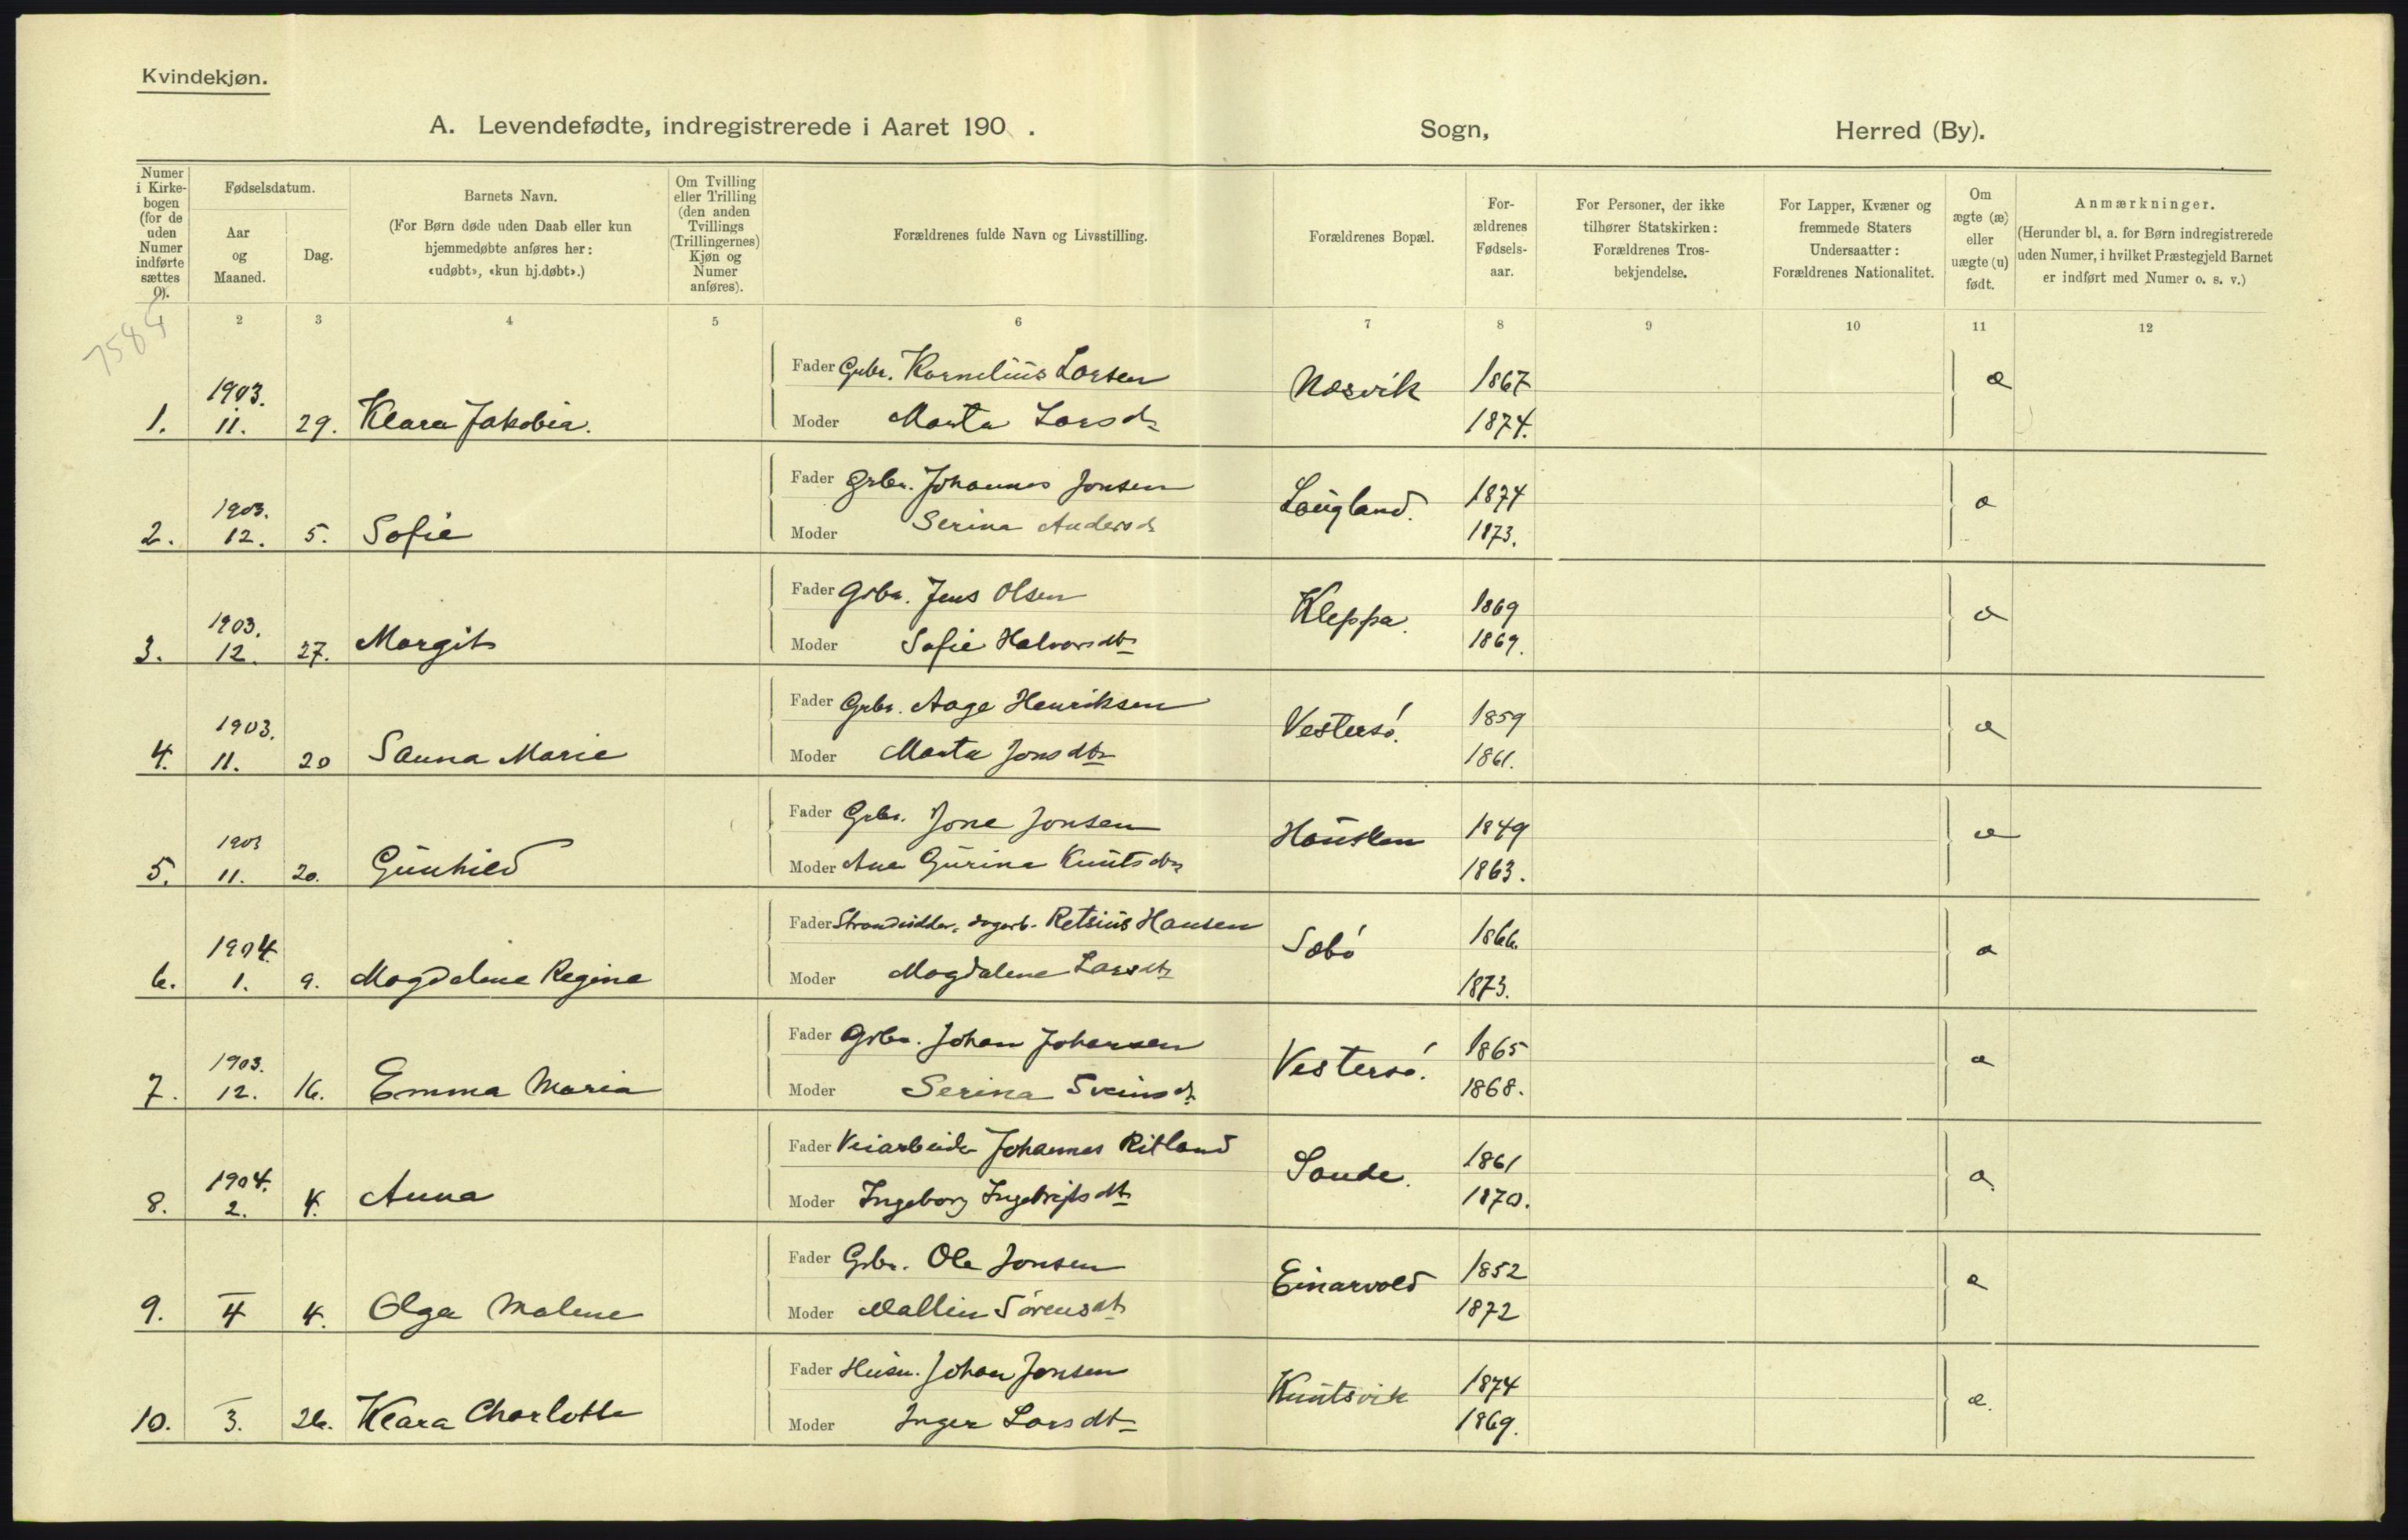 Kvindekjøn.
A. Levendefødte, indregistrerede i Aaret 190 . Sogn, Herred (By).
Numer i Kirkebogen (for de uden Numer indførte sættes 0).
Fødselsdatum.
Aar og Maaned.
Dag.
Barnets Navn.
(For Børn døde uden Daab eller kun hjemmedøbte anføres her: «udøbt», «kun hj.døbt».)
Om Tvilling eller Trilling (den anden Tvillings (Trillingernes) Kjøn og Numer anføres).
Forældrenes fulde Navn og Livsstilling.
Forældrenes Bopæl.
Forældrenes Fødselsaar.
For Personer, der ikke tilhører Statskirken: Forældrenes Trosbekjendelse.
For Lapper, Kvæner og fremmede Staters Undersaatter: Forældrenes Nationalitet.
Om ægte (æ) eller uægte (u) født.
Anmærkninger.
(Herunder bl. a. for Børn indregistrerede uden Numer, i hvilket Præstegjeld Barnet er indført med Numer o. s. v.)
2 3 4 5 6 7 8 9 10 11 12
7585
Fader Gbr. Kornelius Larsen Næsvik 1867 æ
1. 1903. 11. 29. Klara Jakobia. Moder Marta Larsd. 1874.
Fader Grbr. Johannes Jonsen Laugland. 1874 æ
2. 1903. 12. 5. Sofie Moder Serina Andersd. 1873.
Fader Grbr. Jens Olsen Kleppa. 1869 æ
3. 1903. 12. 27. Margit Moder Sofie Halvorsdtr 1869.
Fader Grbr. Aage Henriksen Vestersø. 1859 æ
4. 1903. 11. 20 Sanna Marie Moder Marta Jonsdtr 1861.
Fader Grbr. Jone Jonsen Hauslen 1849 æ
5. 1903 11. 20. Gunhild Moder Ane Gurine Knutsdtr 1863.
Fader Strandsidder, dagarb. Retsius Hansen Søbø 1866. æ
6. 1904. 1. 9. Magdalene Regine Moder Magdalene Larsdtr 1873.
Fader Grbr. Johan Johansen Vestersø. 1865 æ
7. 1903. 12. 16. Emma Maria Moder Serina Sveinsd. 1868.
Fader Veiarbeider Johannes Ritland Sande. 1861 æ
8. 1904. 2. 4. Anna Moder Ingeborg Ingebrigtsdtr 1870.
Fader Grbr. Ole Jonsen Einarvold 1852 æ
9. — 4 4. Olga Malene Moder Mallin Sørensdtr 1872
Fader Husm. Johan Jonsen Knutsvik 1874 æ.
10. — 3. 26. Klara Charlotte Moder Inger Larsdtr 1869.